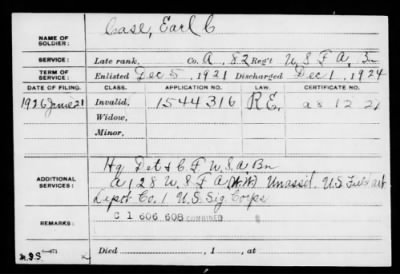 NAME OF SOLDIER: Case, Earl C
SERVICE: Late rank, Co. A, 82 Reg't U.S.F.A. Bn
TERM OF SERVICE: Enlisted Dec 5, 1921 Discharged Dec 1, 1924
DATE OF FILING. CLASS. APPLICATION NO. LAW. CERTIFICATE NO.
1926 June 21 Invalid, 1544316 R.E.
Widow,
Minor,
ADDITIONAL SERVICES: Hq Det & C F U.S.A Bn
A 128 U.S.F.A (W.W.) Unassid. U.S. Field art
Depot Co. 1 U.S. Sig Corps
REMARKS: C 1 606 608 COMBINED
Died , 1 , at